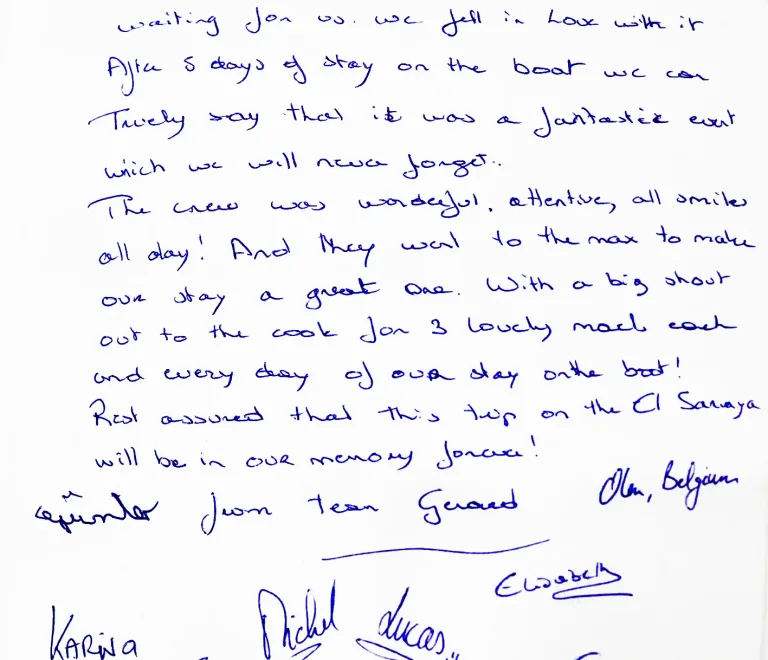 waiting for us. we fell in love with it
After 5 days of stay on the boat we can
Truely say that it was a fantastic event
which we will never forget.
The crew was wonderful, attentive, all smiles
all day! And they went to the max to make
our stay a great one. With a big shout
out to the cook for 3 lovely meals each
and every day of our stay on the boat!
Rest assured that this trip on the El Saraya
will be in our memory forever!
from team Gerard
Olen, Belgium
Elisabeth
Michel Lucas
KARINA